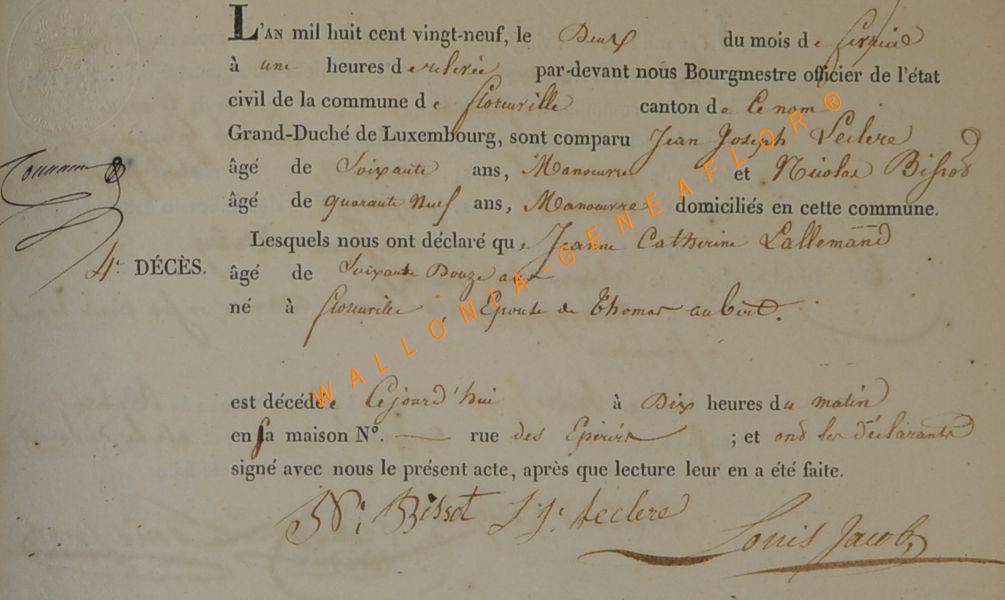 L'AN mil huit cent vingt-neuf, le Deux du mois de fevrier
à une heures de relevée par-devant nous Bourgmestre officier de l'état
civil de la commune de florenville canton de Ce nom
Grand-Duché de Luxembourg, sont comparu Jean Joseph Leclere
âgé de Soixante ans, Manoeuvre et Nicolas Bissot
âgé de quarante Neuf ans, Manoeuvre domiciliés en cette commune.
Lesquels nous ont déclaré que Jeanne Catherine Lallemand
4e DÉCÈS.
âgé de Soixante Douze ans
né à florenville Epouse de Thomas aubert.
est décédée Cejourd'hui à Dix heures du matin
en sa maison No. — rue des ; et ont les déclarants
signé avec nous le présent acte, après que lecture leur en a été faite.
N: Bissot J J: leclere
Louis Jacob
WALLONIA-GENEAFLOR®